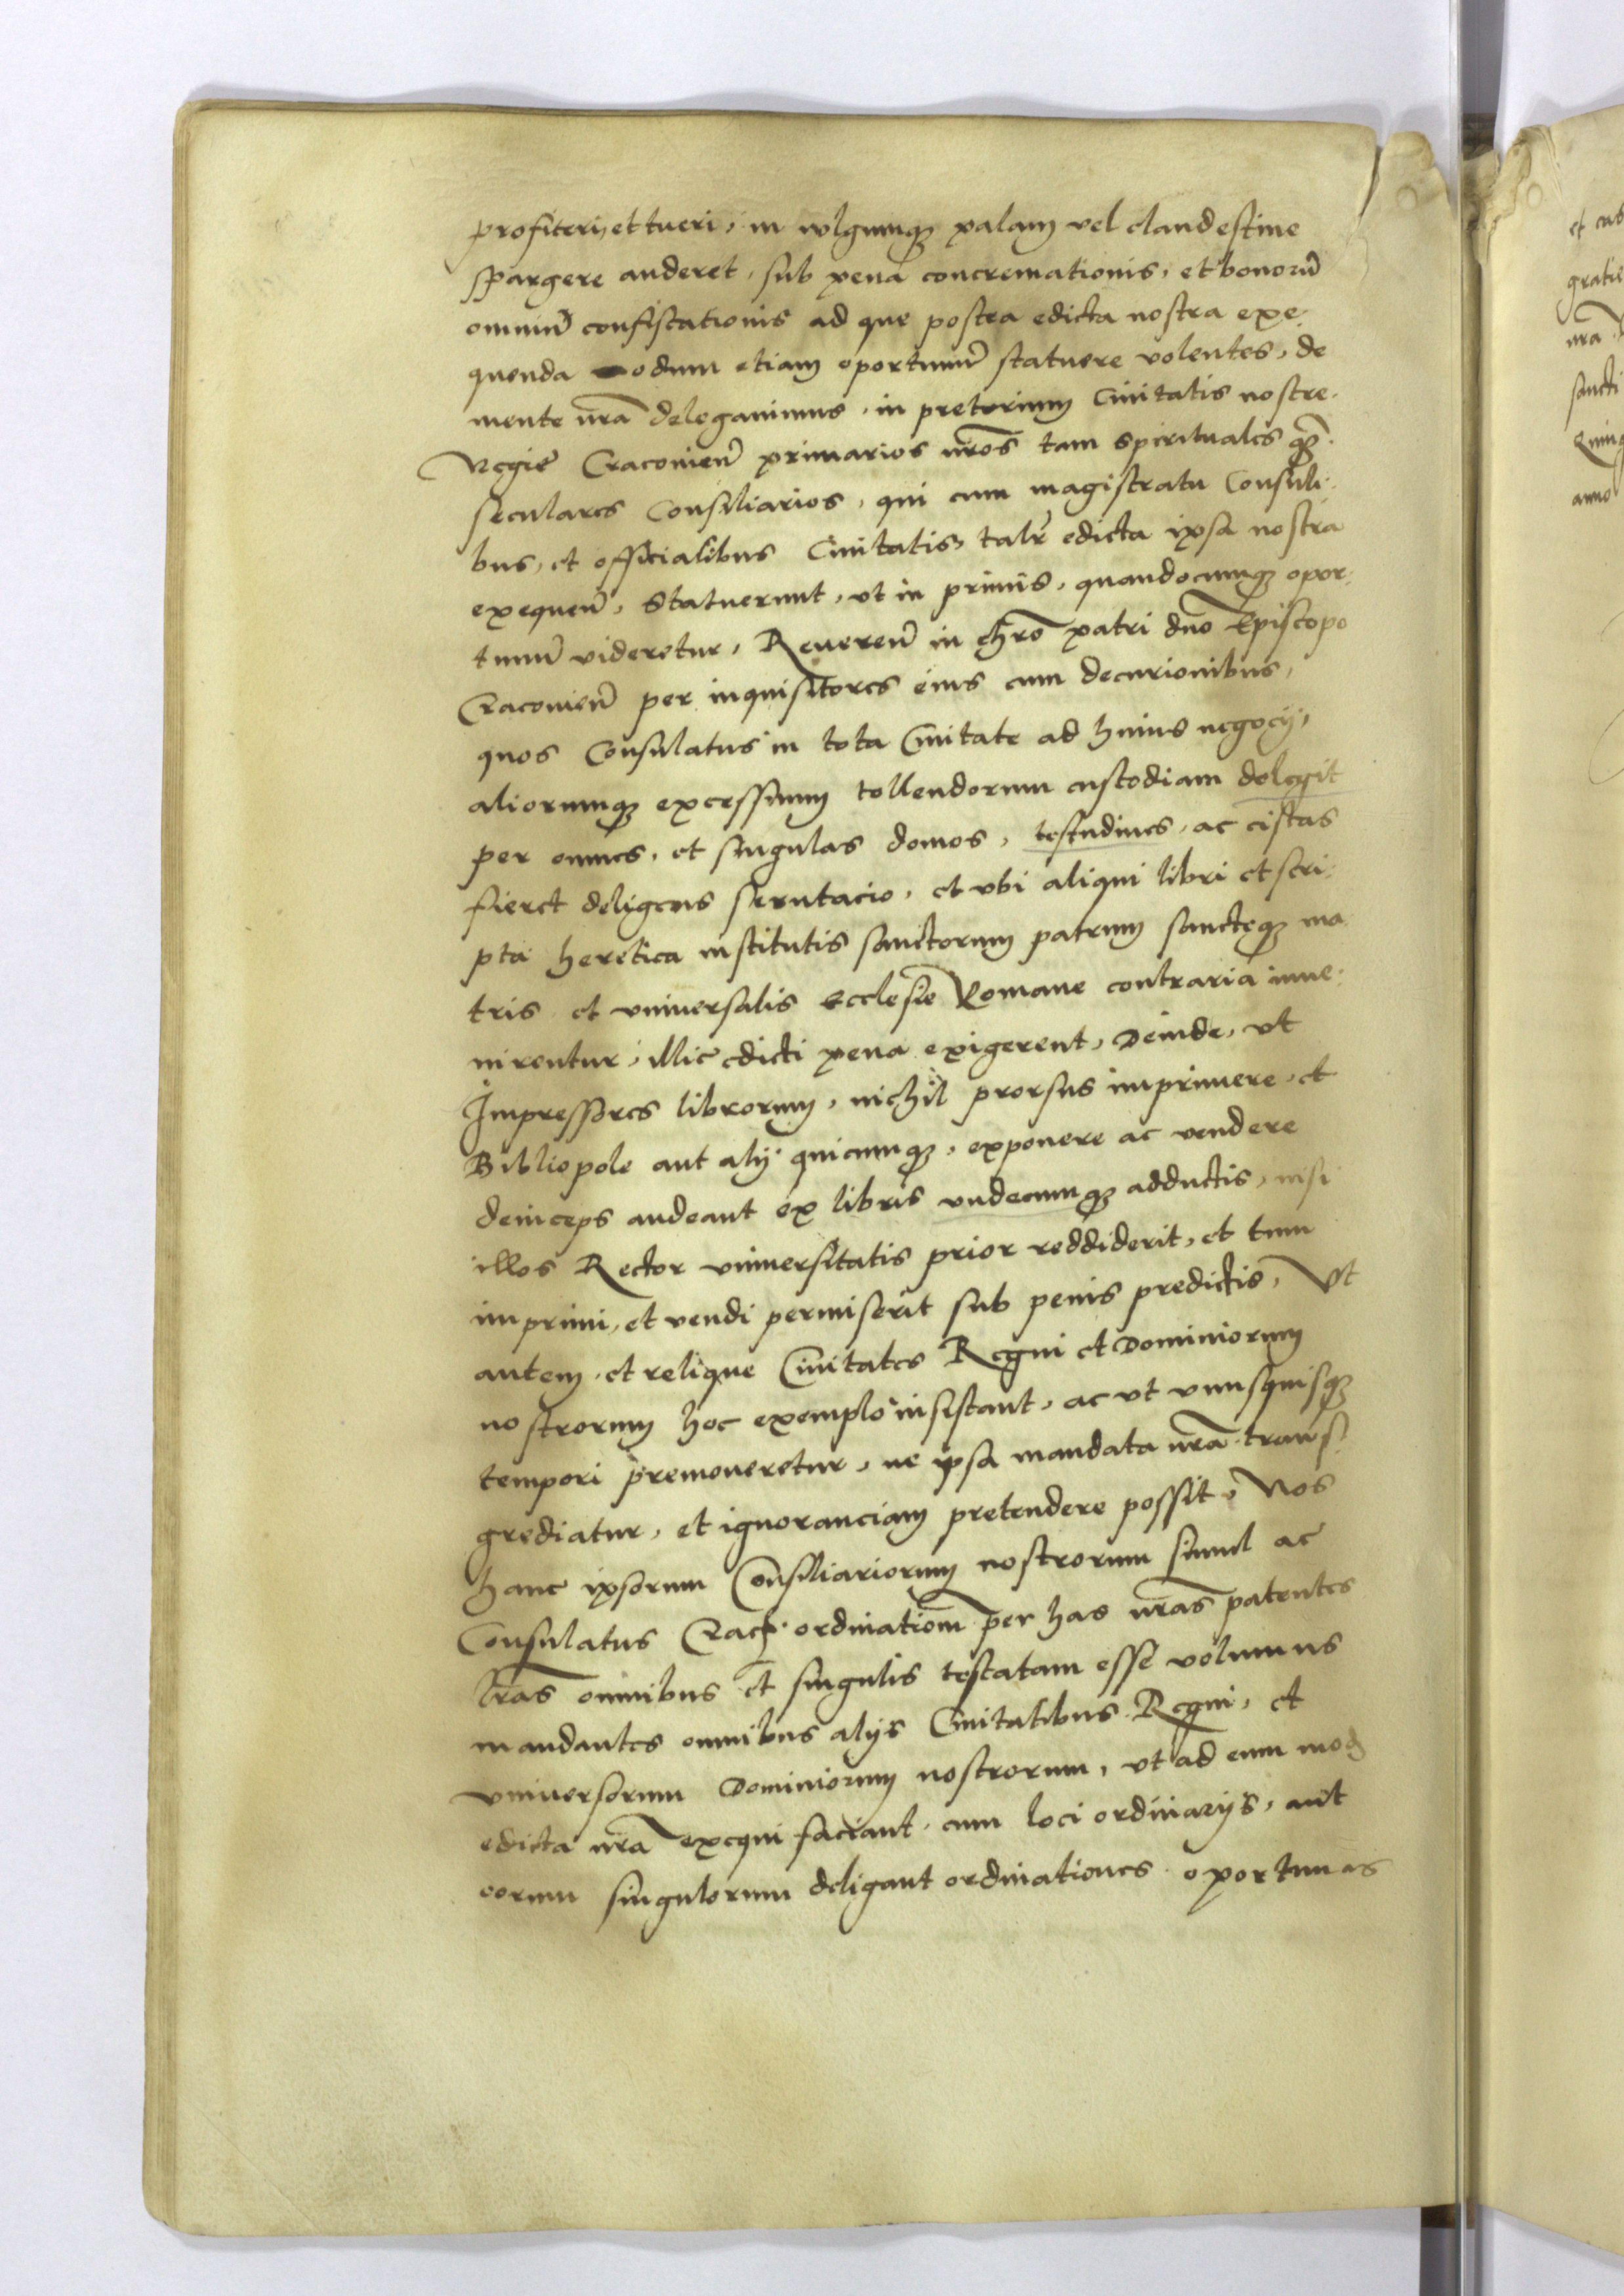 profiteri, et tueri, in wlgumq[ue] palam vel clandestine
spargere auderet, sub pena concremationis, et bonorũ
omniũ confiscationis ad que postea edicta nostra exe:
quenda modum etiam oportunũ statuere volentes, de
mente nrã delegavimus, in pretorium Civitatis nostre
Regie Cracovieñ primarios nrõs tam spirituales q̃
seculares Consiliarios, qui cum magistratu Consuli:
bus, et officialibus Civitatis, talr̃ edicta ipsa nostra
exequeñ, Statuerunt, vt in primis, quandocumq[ue] opor:
tunũ videretur, Revereñ in chrõ patri dno Episcopo
Cracovieñ per inquisitores eius cum decurionibus,
quos Consulatus in tota Civitate ad huius negocij,
aliorumq[ue] excessuum tollendorum custodiam delegit
per omnes, et singulas domos, testudines, ac cistas
fieret deligens scrutacio, et vbi aliqui libri et scri:
pta heretica institutis sanctorum patrum sancteq[ue] ma
tris et vniversalis Ecclesie Romane contraria inve:
nirentur, illic edicti pena exigerent, Deinde, vt
Impressores librorum, nichil prorsus imprimere, et
Bibliopole aut alij quicumq[ue], exponere ac vendere
deinceps audeant ex libris vndecumq[ue] adductis, nisi
illos Rector vniversitatis prior reddiderit, et tum
imprimi, et vendi permiserit sub penis predictis, Vt
autem, et relique Civitates Regni et Dominiorum
nostrorum hoc exemplo insistant, ac vt vnusquisq[ue]
tempori premoneretur, ne ipsa mandata nrã trans
grediatur, et ignoranciam pretendere possit, Nos
hanc ipsorum Consiliariorum nostrorum simul ac
Consulatus Crac: ordinatiom̃ per has nrãs patentes
lrãs omnibus et singulis testatam esse volumus
mandantes omnibus alijs Civitatibus Regni, et
vniversorum Dominiorum nostrorum, vt ad eum mod
edicta nrã exequi faciant, cum loci ordinarijs, aut
eorum singulorum deligant ordinationes oportunas
et
gratie
nra
sancti
Quing
anno